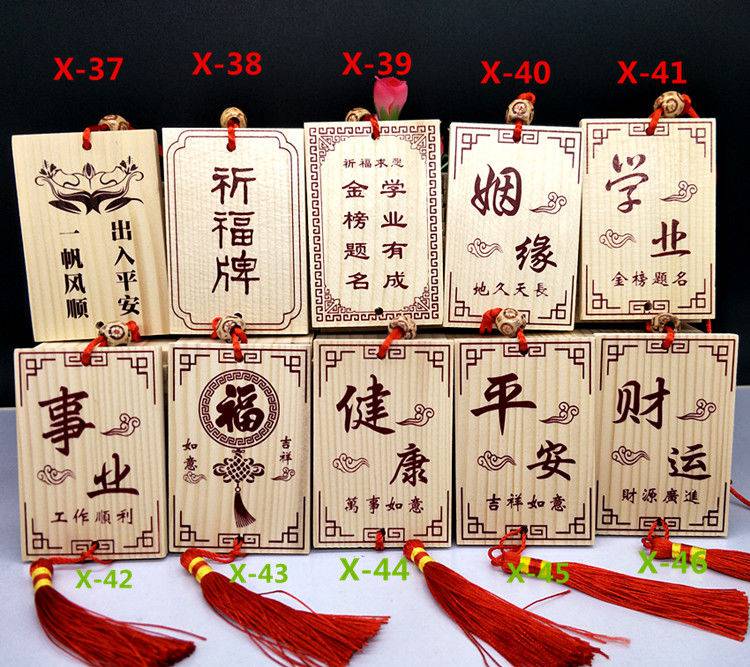 X-37
X-38
X-39
X-40
X-41
出入平安
一帆风顺
祈福牌
祈福求
学业有成
金榜题名
姻缘
地久天長
学业
金榜題名
事业
工作順利
福
吉祥
如意
健康
萬事如意
平安
吉祥如意
财运
財源廣進
X-42
X-43
X-44
X-45
X-46